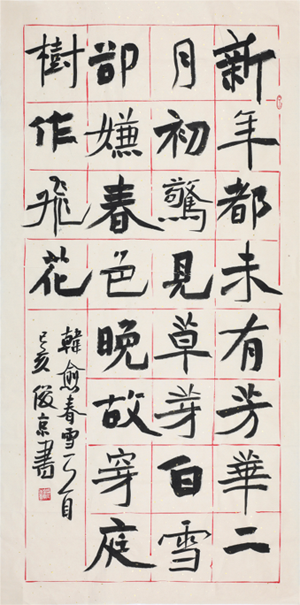 新年都未有芳華二
月初驚見草芽白雪
卻嫌春色晚故穿庭
樹作飛花
韓愈春雪一首
己亥俊京書